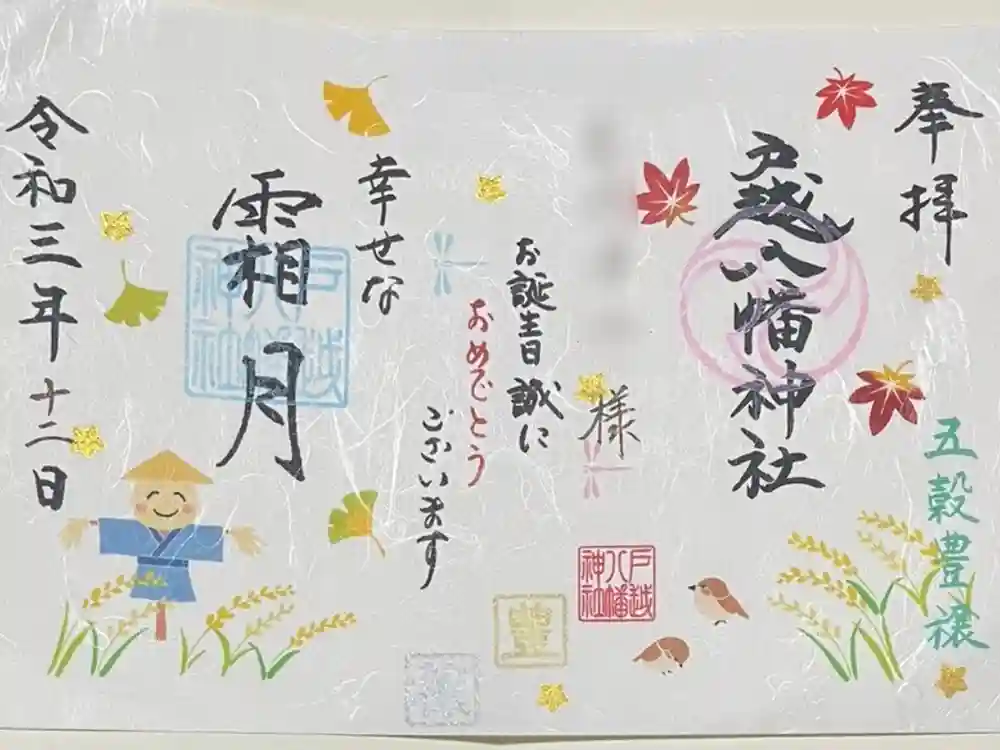 奉拝
五穀豊穣
戸越八幡神社
様
お誕生日 誠に
おめでとう
ございます
幸せな
霜月
令和三年十二日
戸越
八幡
神社
戸越
八幡
神社
豊